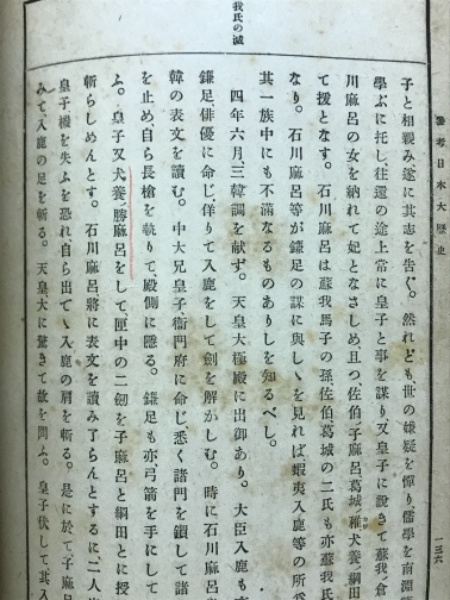 參考日本大歷史
一三六
我氏の滅
子と相親み遂に其志を告ぐ。然れども、世の嫌疑を憚り儒學を南淵
學ぶに托し、往還の途上常に皇子と事を謀り又皇子に説きて蘇我ノ倉
川麻呂の女を納れて妃となさしめ、且つ、佐伯ノ子麻呂葛城ノ稚犬養ノ綱田
て援となす。石川麻呂は蘇我馬子の孫佐伯葛城の二氏も亦蘇我氏
なり。石川麻呂等が鎌足の謀に與しゝを見れば、蝦夷入鹿等の所爲
其一族中にも不滿なるものありしを知るべし。
四年六月、三韓調を献ず。天皇大極殿に出御あり。大臣入鹿も亦
鎌足、俳優に命じ、佯りて入鹿をして劍を解かしむ。時に石川麻呂
韓の表文を讀む。中大兄皇子、衞門府に命じ、悉く諸門を鎖して諸
を止め、自ら長槍を執りて、殿側に隱る。鎌足も亦、弓箭を手にして
ふ。皇子又犬養ノ勝麻呂をして、匣中の二劒を子麻呂と綱田とに授
斬らしめんとす。石川麻呂將に表文を讀み了らんとするに、二人
皇子機を失ふを恐れ、自ら出でゝ入鹿の肩を斬る。是に於て、子麻呂
みて、入鹿の足を斬る。天皇大に驚きて故を問ふ。皇子伏して、其入